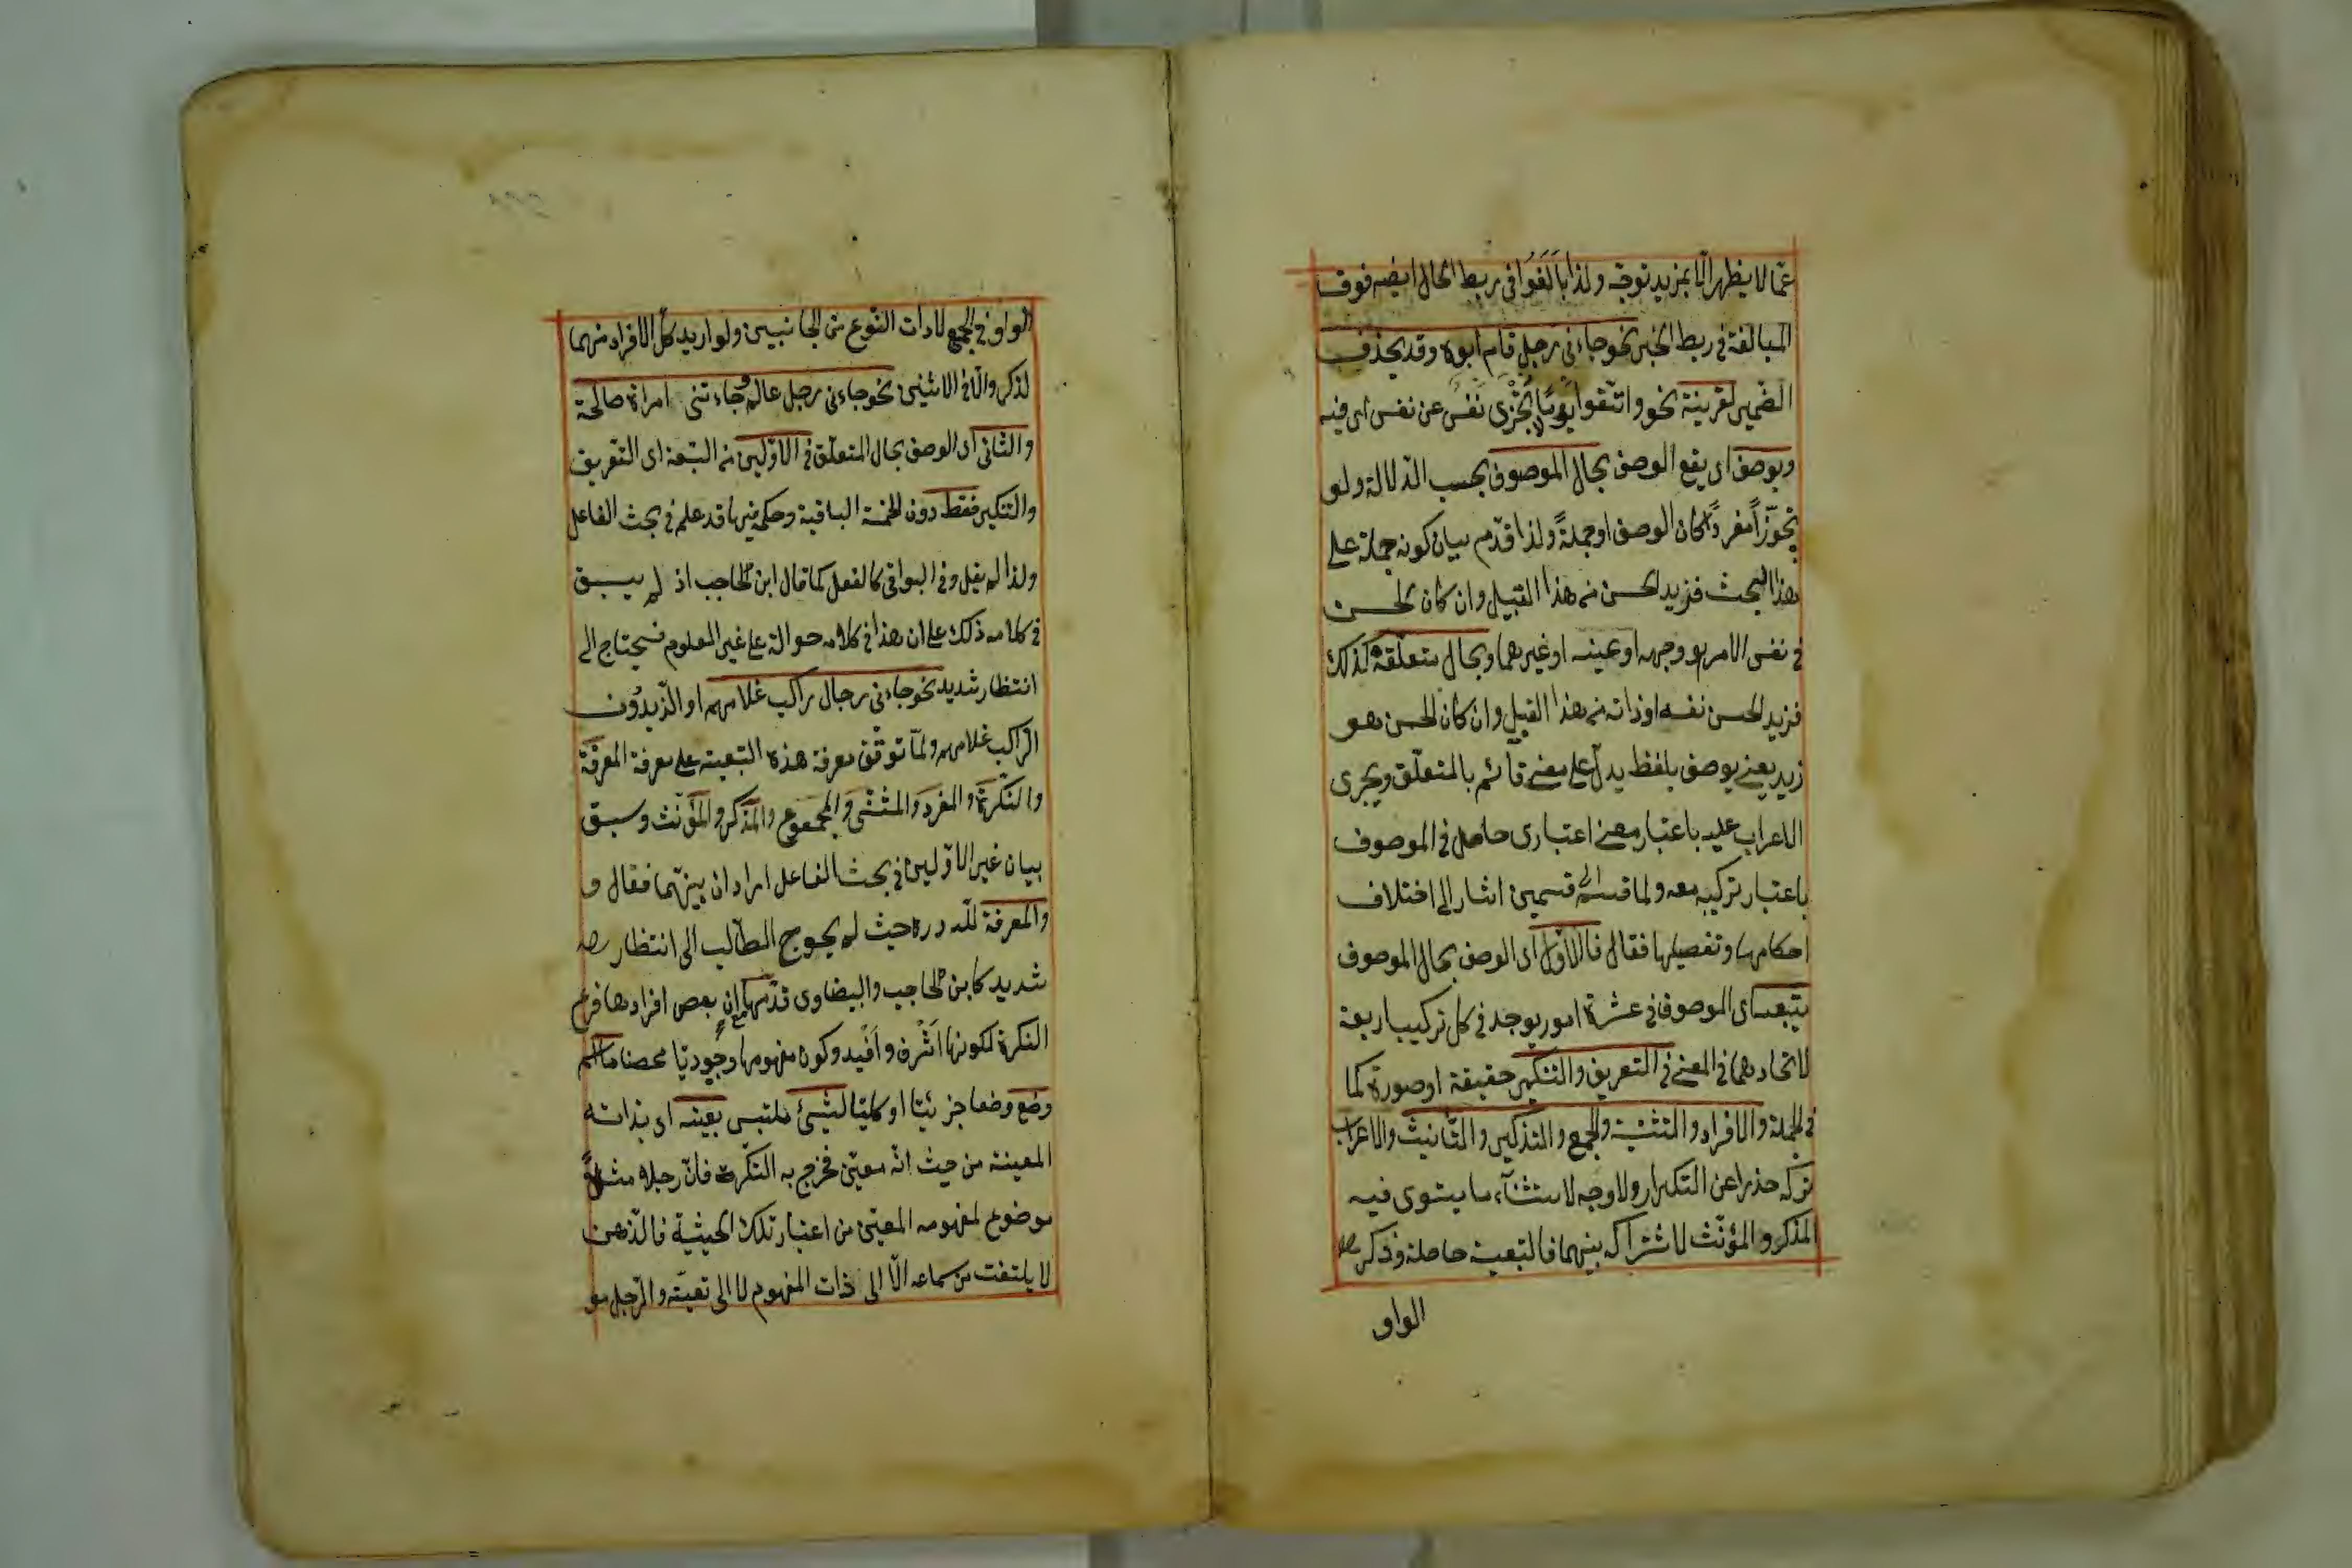 عمّا لا يظهر الّا بمزيد توجّه ولذا بالَغُوا فى ربط الحال ايضه فوف
المبالغة فى ربط الخبر نحو جاءنى رجل قام ابوه وقد يحذف
الضمير لقرينة نحو واتّقوا يومًا لا تجزى نفس عن نفس اى فيه
ويوصف اى يقع الوصف بحال الموصوف بحسب الدّلالة ولو
تجوّزاً مفردًا كان الوصف او جملةً ولذا قدّم بيان كونه جملة على
هذا البحث فزيد الحسن من هذا القبيل وان كان الحسن
فى نفس الامر هو وجهه او عينه او غيرهما وبحال متعلّقه كذلك
فزيد الحسن نفسه او ذاته من هذا القبيل وان كان الحسن هو
زيد يعنى يوصف بلفظ يدلّ على معنى قائم بالمتعلّق ويجرى
الاعراب عليه باعتبار معنى اعتبارى حاصل فى الموصوف
باعتبار تركيبه معه ولما قسمه الى قسمين اشار الى اختلاف
احكامهما وتفصيلها فقال فالاوّل اى الوصف بحال الموصوف
يتبعه اى الموصوف فى عشرة امور يوجد فى كل تركيب اربعة
لاتحادهما فى المعنى فى التعريف والتنكير حقيقة او صورة كما
فى الجملة والافراد والتثنية والجمع والتذكير والتأنيث والاعراب
تركه حذرا عن التكرار ولا وجه لاستثناء ما يستوى فيه
المذكر والمؤنّث لاشتراكه بينهما فالتبعية حاصلة وذكر
الواو
الواو فى الجمع لارادة النّوع من الجانبين ولو اريد كلّ الافراد منهما
لذكر والّا فى الاثنين نحو جاءنى رجل عالم وجاءتنى امرأة صالحة
والثانى اى الوصف بحال المتعلّق فى الاوّلين من التبعة اى التعريف
والتنكير فقط دون الخمسة الباقية وحكمه فيها قد علم فى بحث الفاعل
ولذا لم يقل وفى البواقى كالفعل كما قال ابن الحاجب اذ لم يسبق
فى كلامه ذلك على ان هذا فى كلامه حوالة على غير المعلوم فيحتاج الى
انتظار شديد نحو جاءنى رجال راكب غلامهم او الزّيدون
الراكب غلامهم ولمّا توقّف معرفة هذه التبعية على معرفة المعرفة
والنّكرة والمفرد والمثنّى والمجموع والمذكر والمؤنّث وسبق
بيان غير الاوّلين فى بحث الفاعل اراد ان يبيّنهما فقال و
والمعرفة للّه درّه حيث لم يحوج الطّالب الى انتظار
شديد كابن الحاجب والبيضاوى قدّمها مع ان بعض افرادها فرع
النكرة لكونها اشرف وافيد وكون مفهومها وجوديّا محضا ما اسم
وضع وضعا جزئيّا او كليّا لشئ ملتبس بعينه اى بذاته
المعينة من حيث انّه معيّن فخرج به النّكرة فانّ رجلا مثلًا
موضوع لمفهومه المعيّن من اعتبار تلك الحيثية فالذّهن
لا يلتفت من سماعه الّا الى ذات المفهوم لا الى تعيّنه والرّجل مو